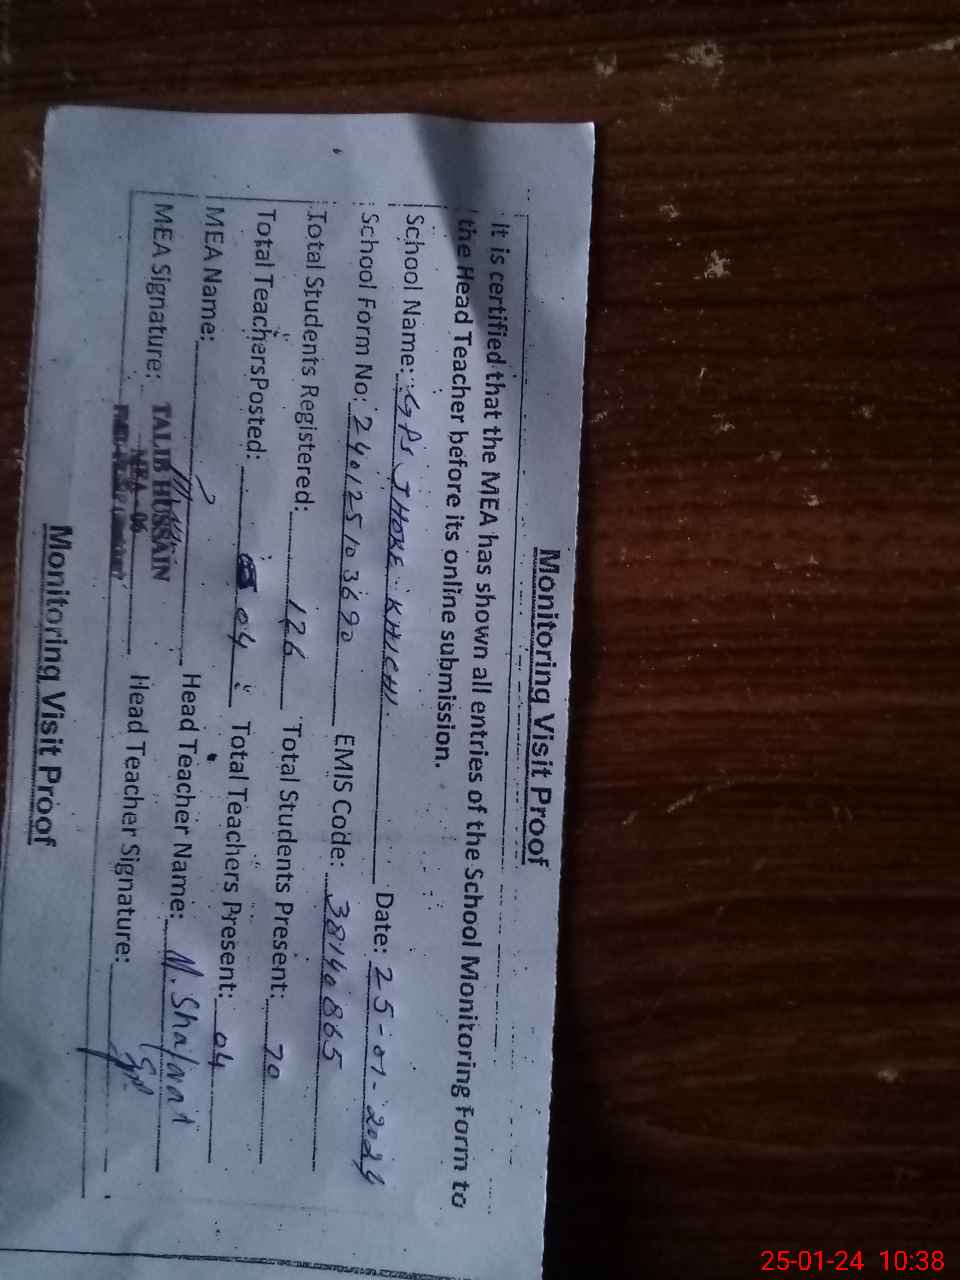 Monitoring Visit Proof
It is certified that the MEA has shown all entries of the School Monitoring Form to
the Head Teacher before its online submission.
School Name: GPS JHOKE KHICHI Date: 25-01-2024
School Form No: 240125103690 EMIS Code: 38140865
Total Students Registered: 126 Total Students Present: 70
Total TeachersPosted: 04 Total Teachers Present: 04
MEA Name: Head Teacher Name: M. Shafaat
MEA Signature: TALIB HUSSAIN Head Teacher Signature:
MEA-06
Monitoring Visit Proof
25-01-24 10:38